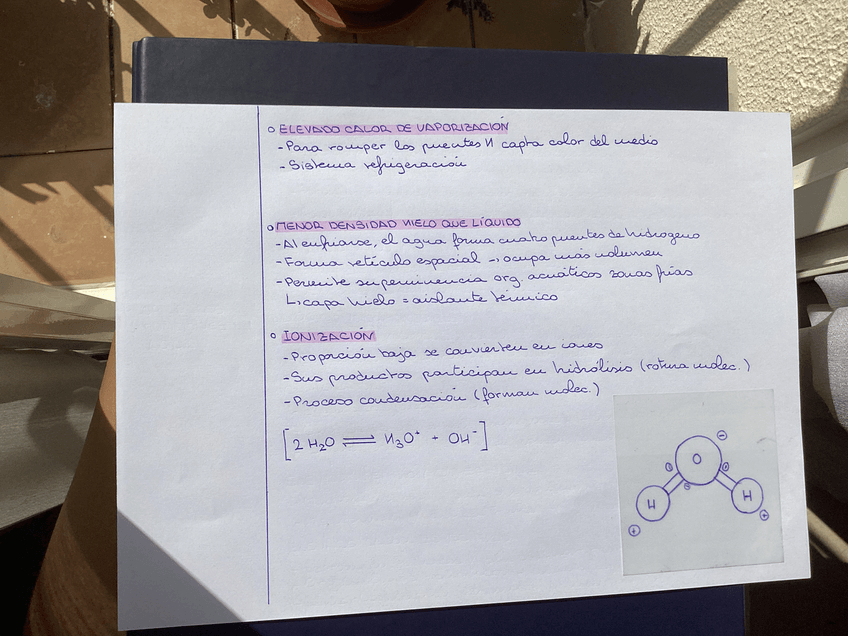 ELEVADO CALOR DE VAPORIZACIÓN
-Para romper los puentes H capta calor del medio
-Sistema refrigeración
MENOR DENSIDAD HIELO QUE LÍQUIDO
-Al enfriarse, el agua forma cuatro puentes de hidrogeno
-Forma retículo espacial → ocupa más volumen
-Permite supervivencia org. acuáticos zonas frías
↳ capa hielo = aislante térmico
IONIZACIÓN
-Proporción baja se convierten en iones
-Sus productos participan en hidrólisis (rotura molec.)
-Proceso condensación (forman molec.)
[2 H₂O ⇌ H₃O⁺ + OH⁻]
⊖
O
H H
⊕ ⊕